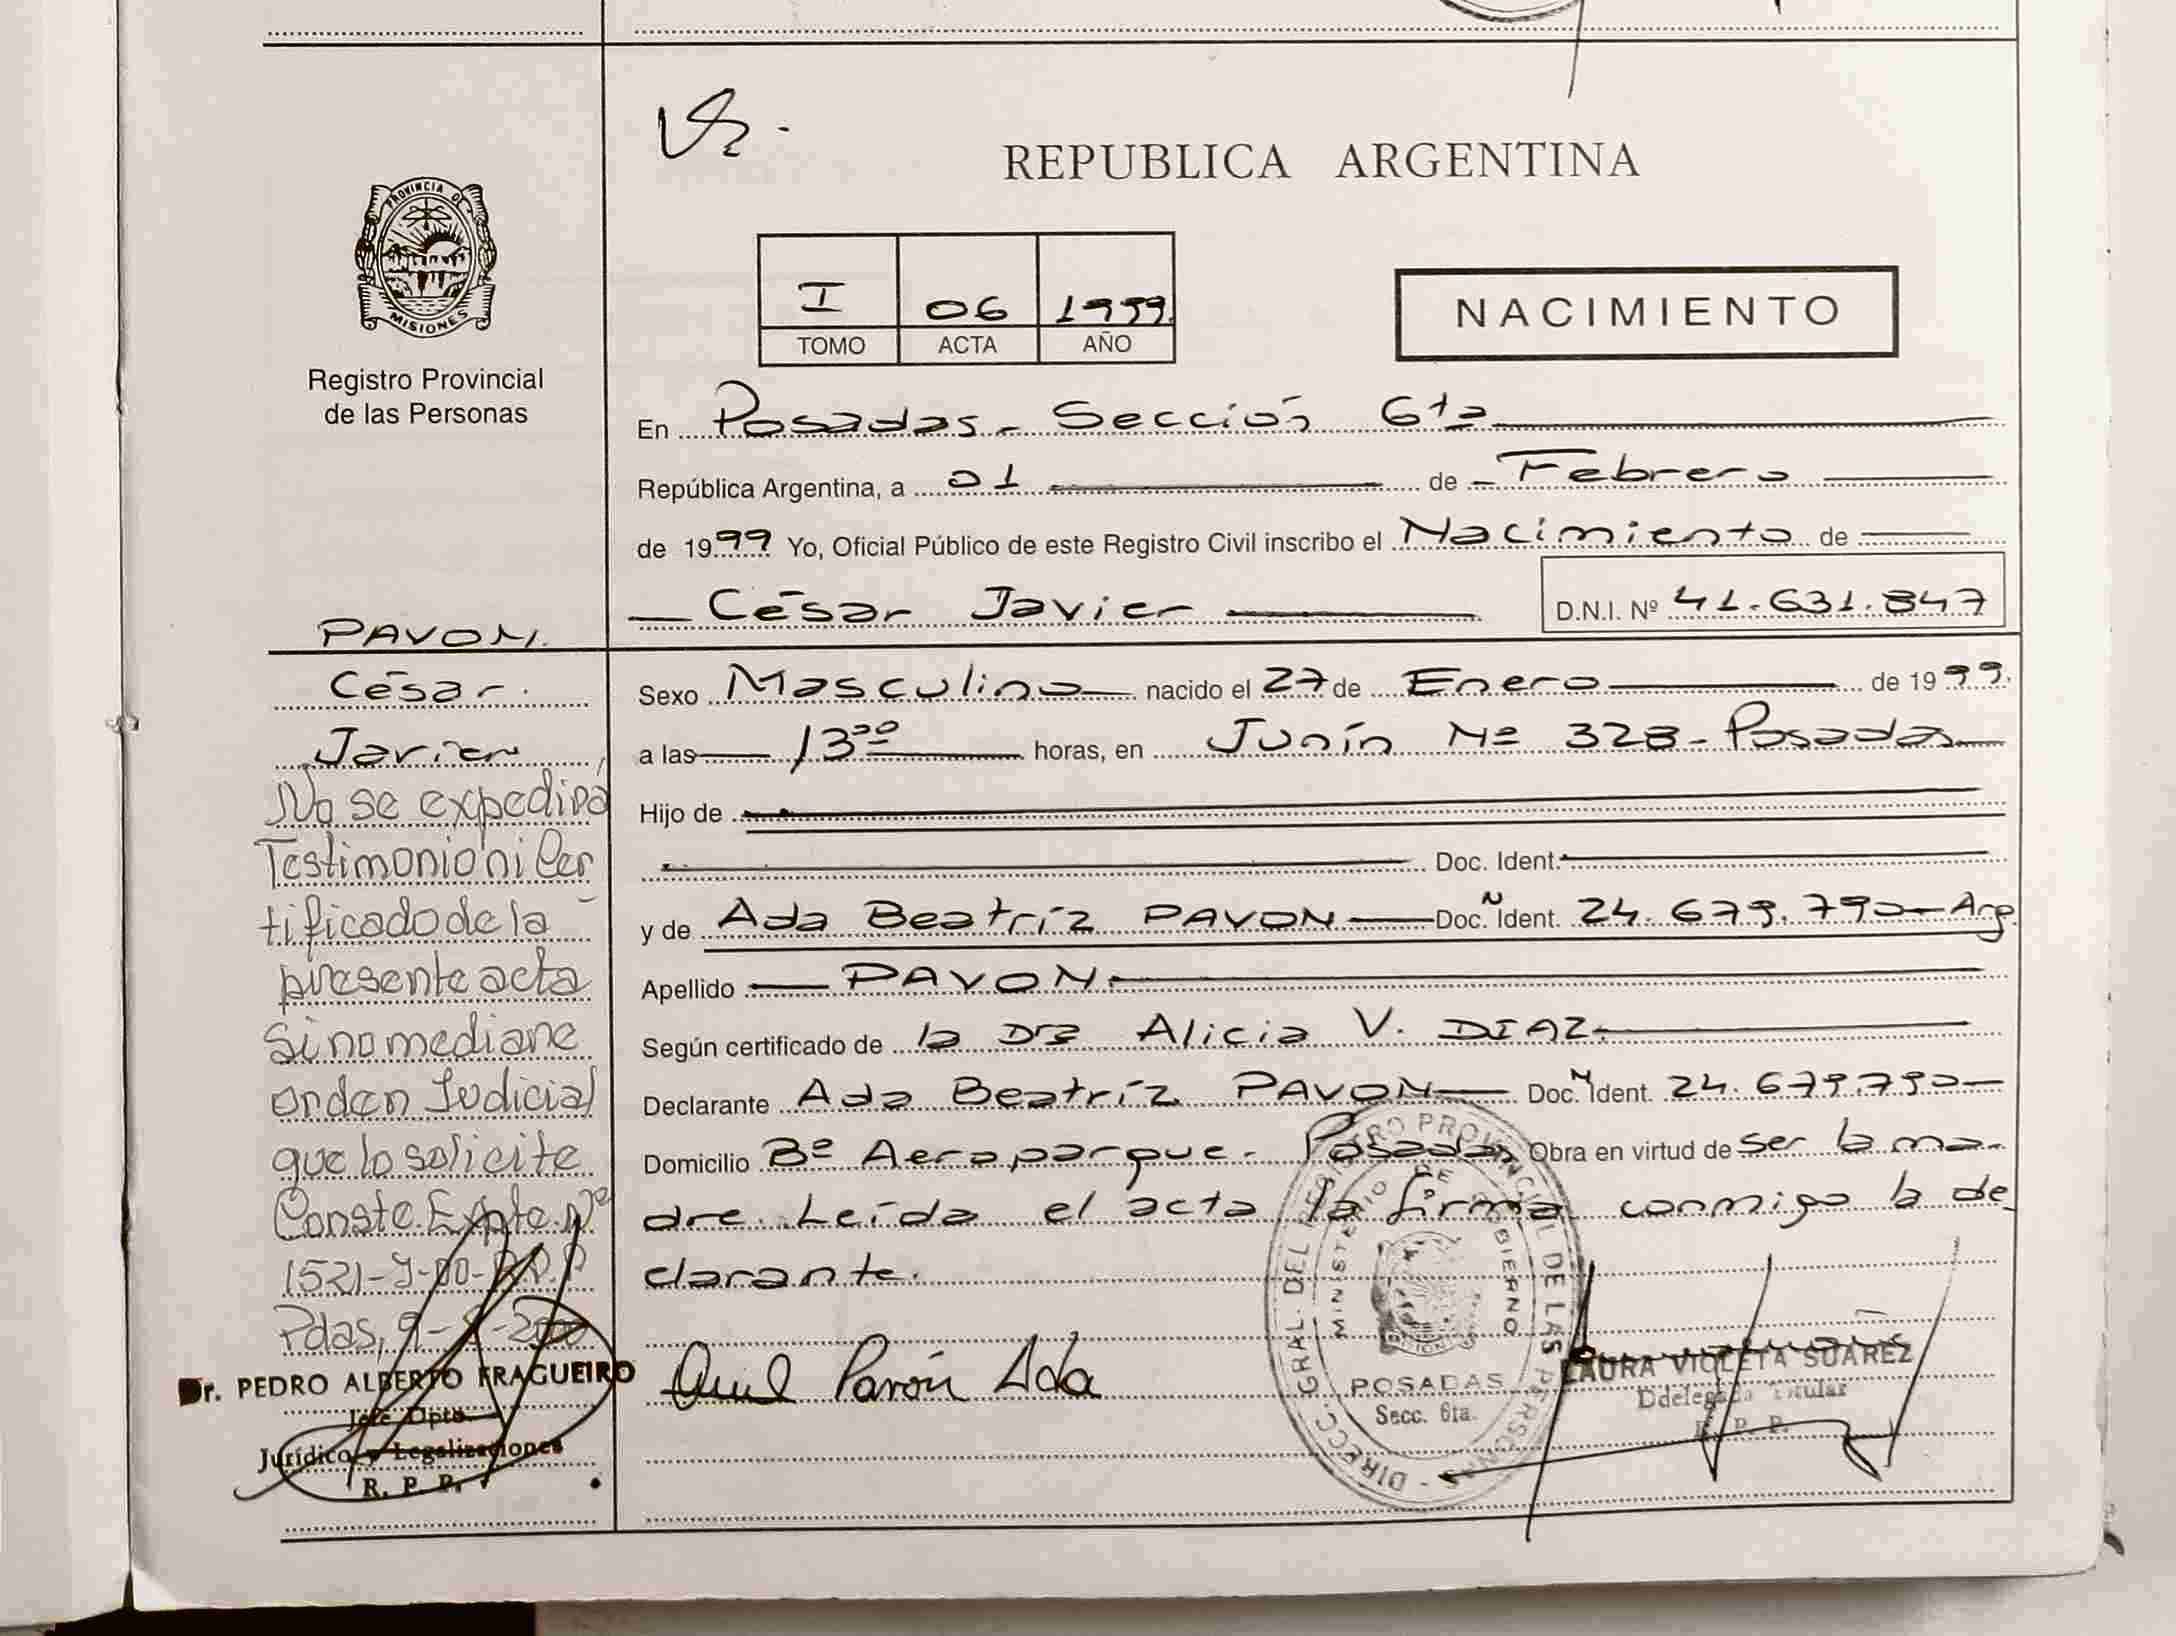 REPUBLICA ARGENTINA
PROVINCIA DE MISIONES
Registro Provincial
de las Personas
I 06 1999
TOMO ACTA AÑO
NACIMIENTO
En Posadas - Sección 6ta
República Argentina, a 01 de Febrero
de 1999 Yo, Oficial Público de este Registro Civil inscribo el Nacimiento de
César Javier D.N.I. Nº 41.631.847
Sexo Masculino nacido el 27 de Enero de 1999.
a las 13 30 horas, en Junín Nº 328 - Posadas
Hijo de
Doc. Ident.
y de Ada Beatríz PAVON Doc. N Ident. 24.679.790 - Arg.
Apellido PAVON
Según certificado de la Dra Alicia V. DIAZ.
Declarante Ada Beatríz PAVON Doc. N Ident. 24.679.790
Domicilio Bº Aeroparque - Posadas Obra en virtud de ser la ma-
dre. Leída el acta la firma conmigo la de
clarante.
Pavón Ada
PAVON.
César.
Javier
No se expedirá
Testimonio ni Cer
tificado de la
presente acta
Sino mediane
orden Judicial
que lo solicite
Conste. Expte. Nº
1521-
Pdas, 9-
Dr. PEDRO ALBERTO FRAGUEIRO
Jefe Dpto.
Jurídico y Legalizaciones
R. P. P.
DIRECC. GRAL. DEL REGISTRO PROVINCIAL DE LAS PERSONAS
MINISTERIO DE GOBIERNO
POSADAS
Secc. 6ta.
LAURA VIOLETA SUAREZ
Ddelegada Titular
R. P. P.